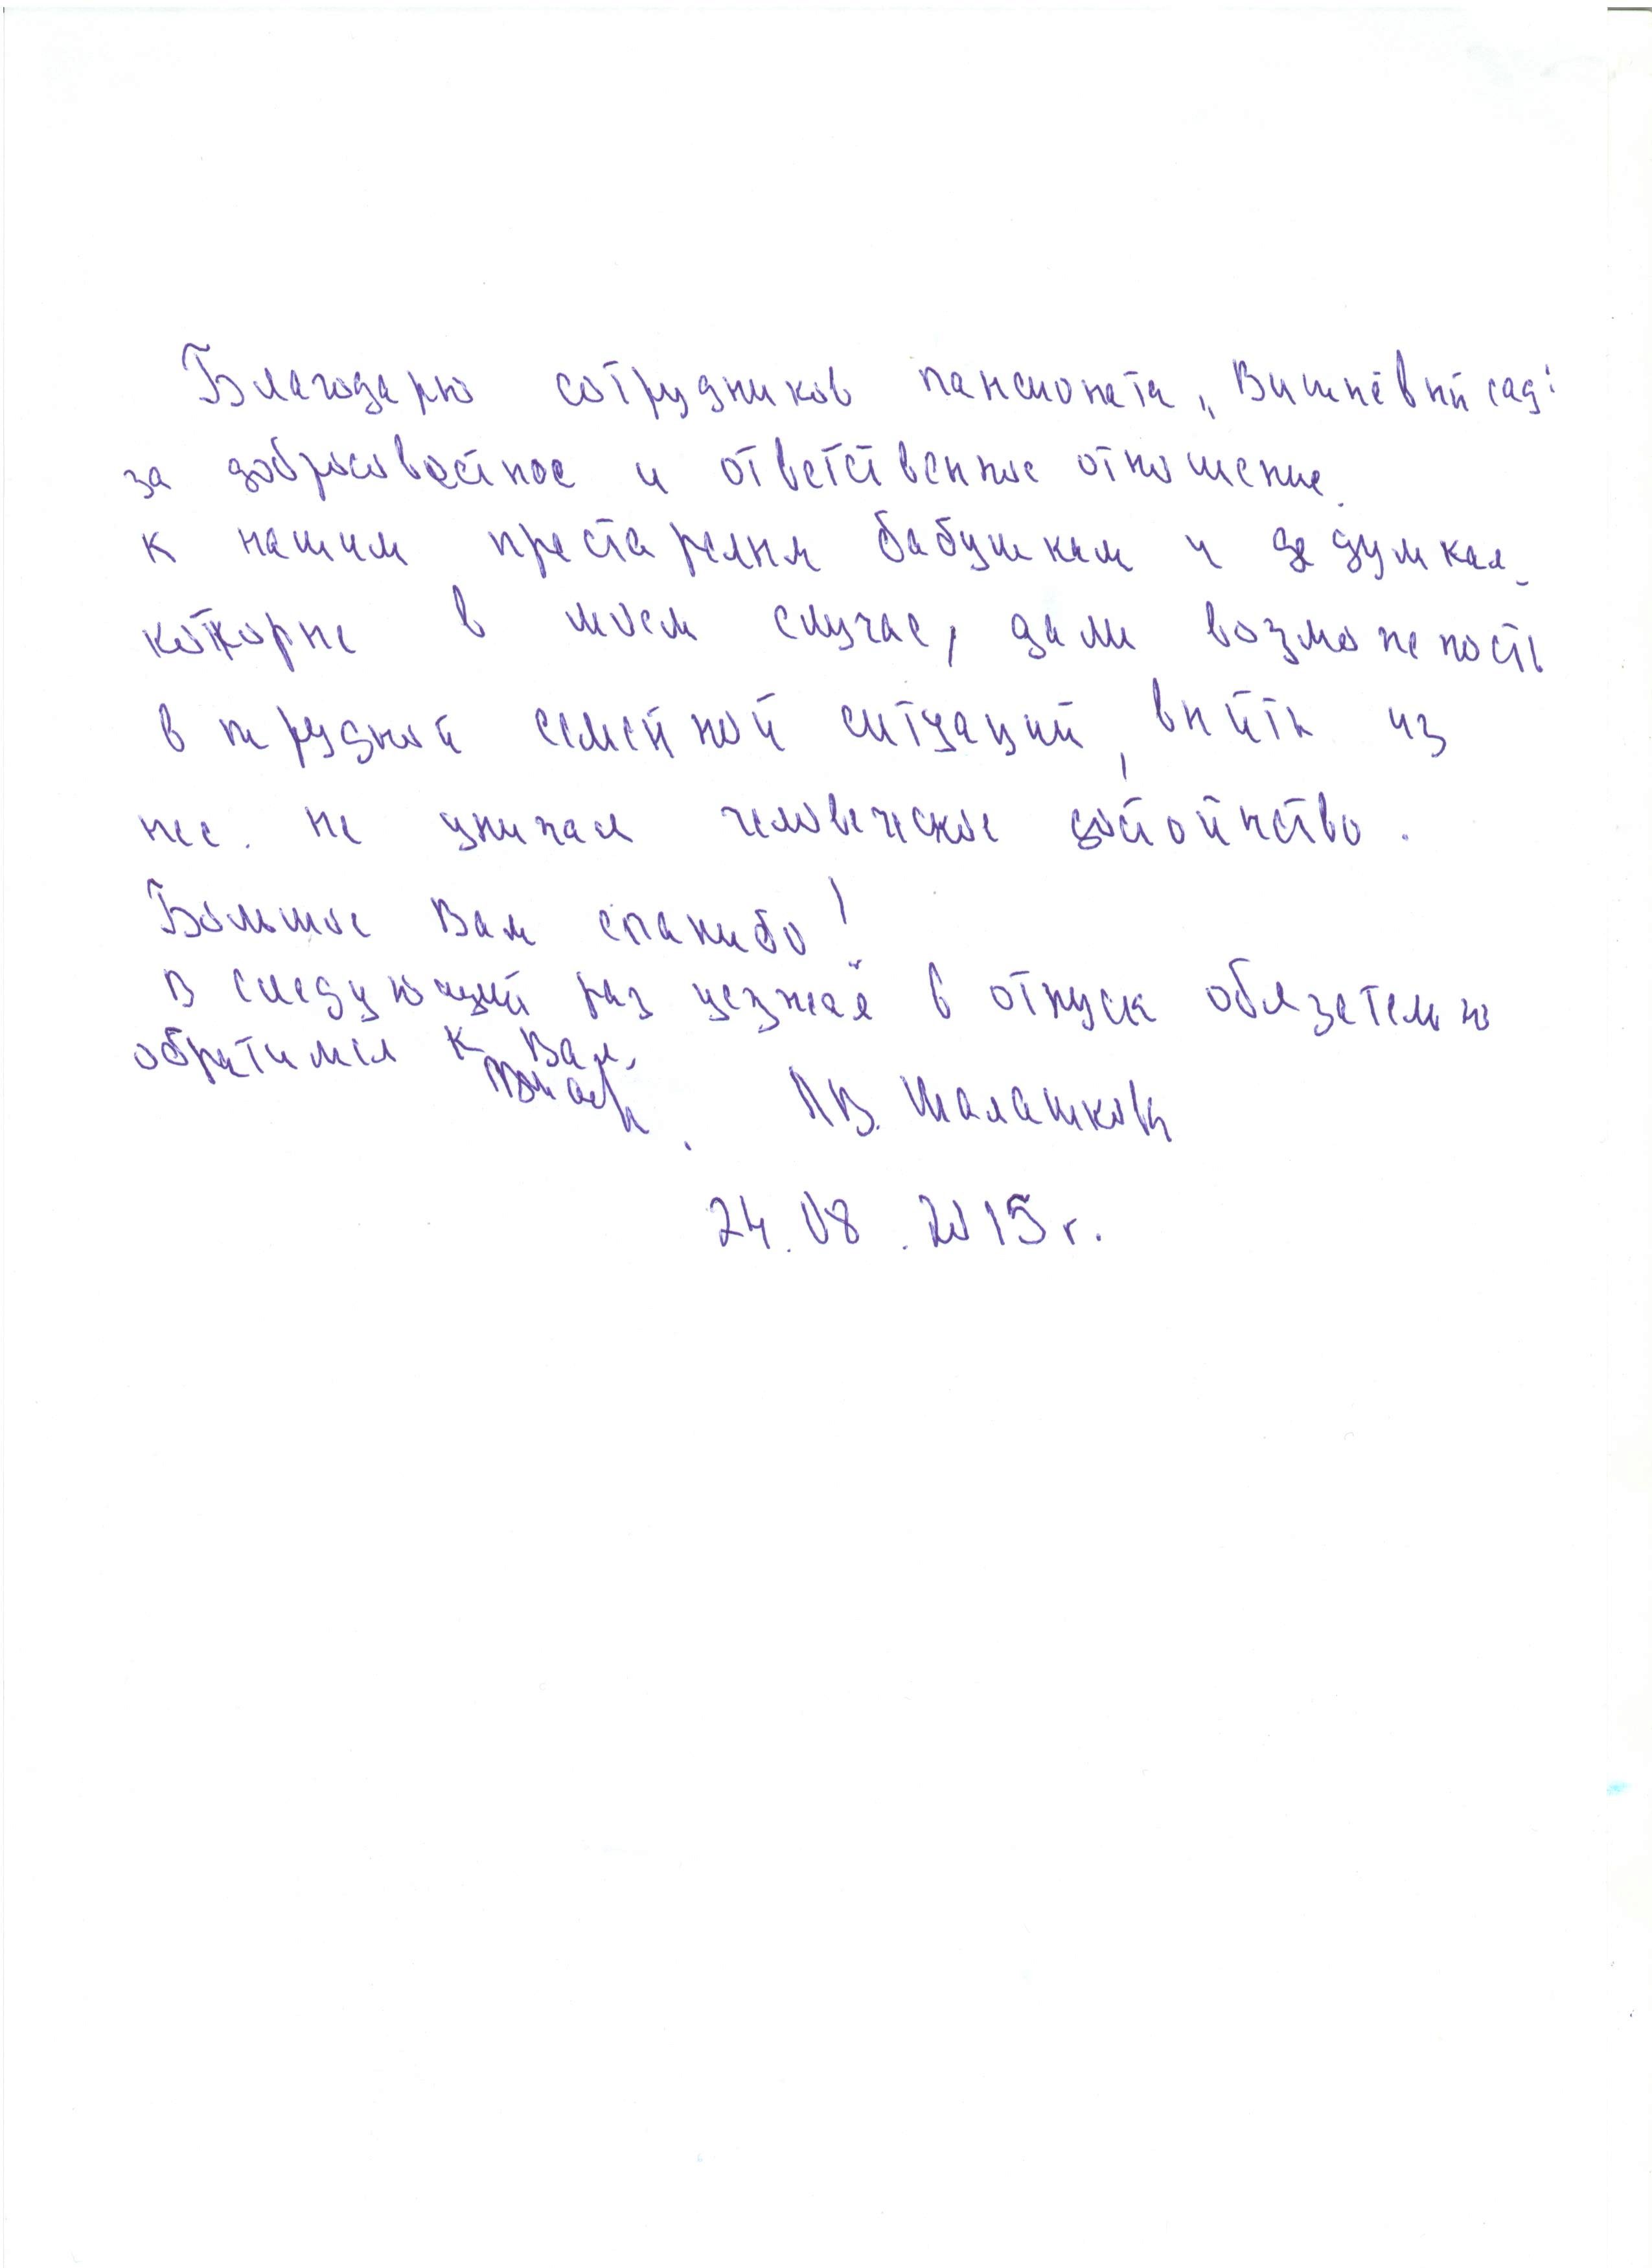 Благодарю сотрудников пансионата „Вишнёвый сад"
за добросовестное и ответственное отношение
к нашим престарелым бабушкам и дедушкам,
которые в моем случае, дали возможность
в трудной семейной ситуаций, выйти из
нее не унижая человеческое достойнство.
Большое Вам спасибо!
В следующий раз уезжая в отпуск обязательно
обратимся к Вам.
Шалашков
24.08.2015г.